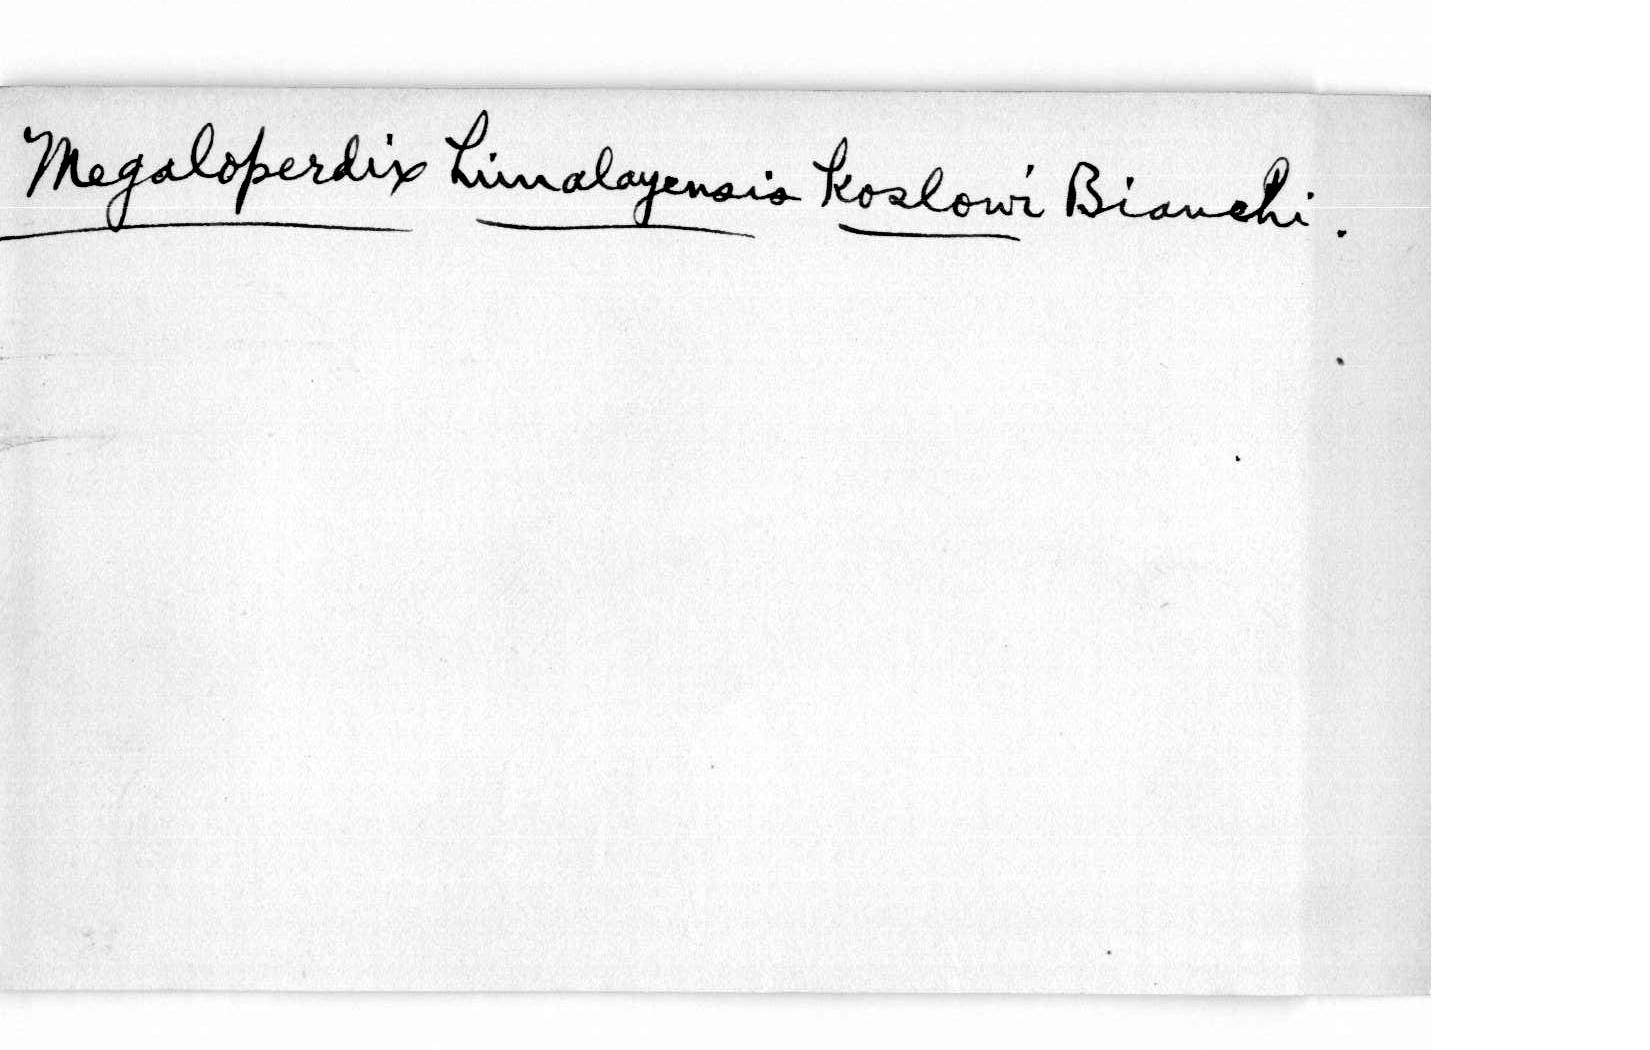 Megaloperdix himalayensis koslowi Bianchi.